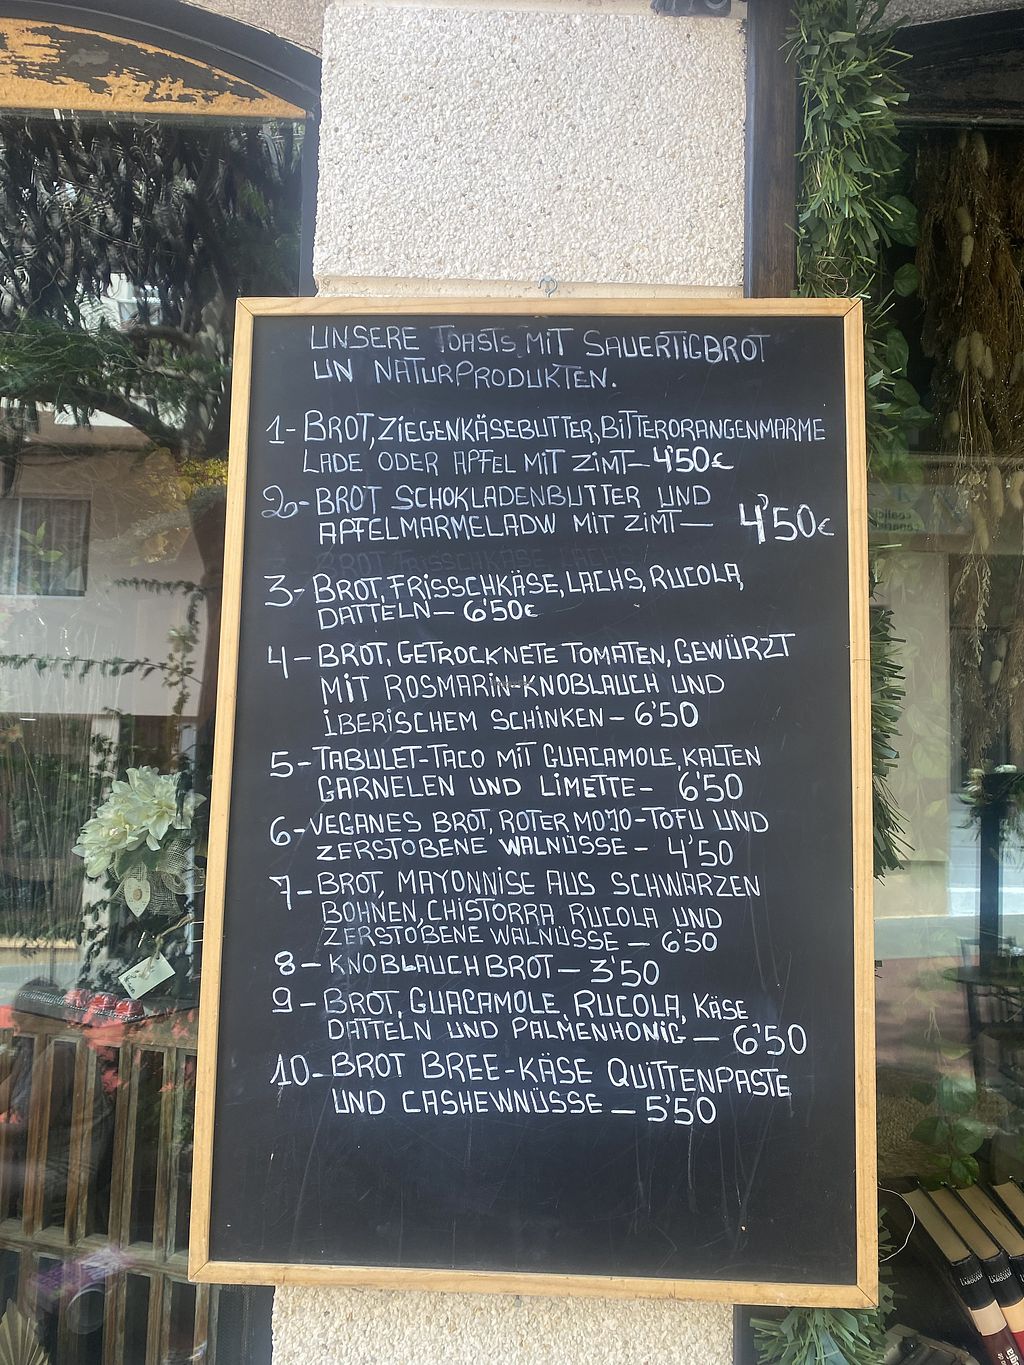 UNSERE TOASTS MIT SAUERTIGBROT
UN NATURPRODUKTEN.
1- BROT, ZIEGENKÄSEBUTTER, BITTERORANGENMARME
LADE ODER APFEL MIT ZIMT— 4'50€
2- BROT SCHOKLADENBUTTER UND
APFELMARMELADW MIT ZIMT— 4'50€
3- BROT, FRISSCHKÄSE, LACHS, RUCOLA,
DATTELN— 6'50€
4- BROT, GETROCKNETE TOMATEN, GEWÜRZT
MIT ROSMARIN-KNOBLAUCH UND
IBERISCHEM SCHINKEN- 6'50
5- TABULET-TACO MIT GUACAMOLE, KALTEN
GARNELEN UND LIMETTE- 6'50
6- VEGANES BROT, ROTER MOJO-TOFU UND
ZERSTOBENE WALNÜSSE - 4'50
7- BROT, MAYONNISE AUS SCHWARZEN
BOHNEN, CHISTORRA RUCOLA UND
ZERSTOBENE WALNÜSSE — 6'50
8- KNOBLAUCHBROT— 3'50
9- BROT, GUACAMOLE, RUCOLA, KÄSE
DATTELN UND PALMENHONIG — 6'50
10- BROT BREE-KÄSE QUITTENPASTE
UND CASHEWNÜSSE — 5'50